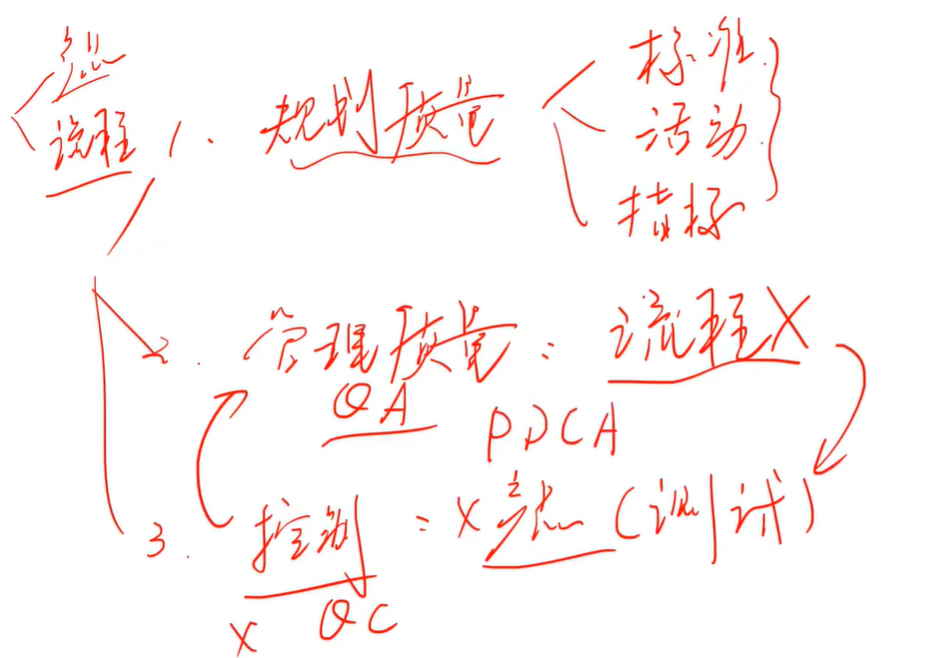 产品
流程
1. 规划质量
标准
活动
指标
2. 管理质量: 流程X
QA
PDCA
3. 控制: X产品(测试)
X QC